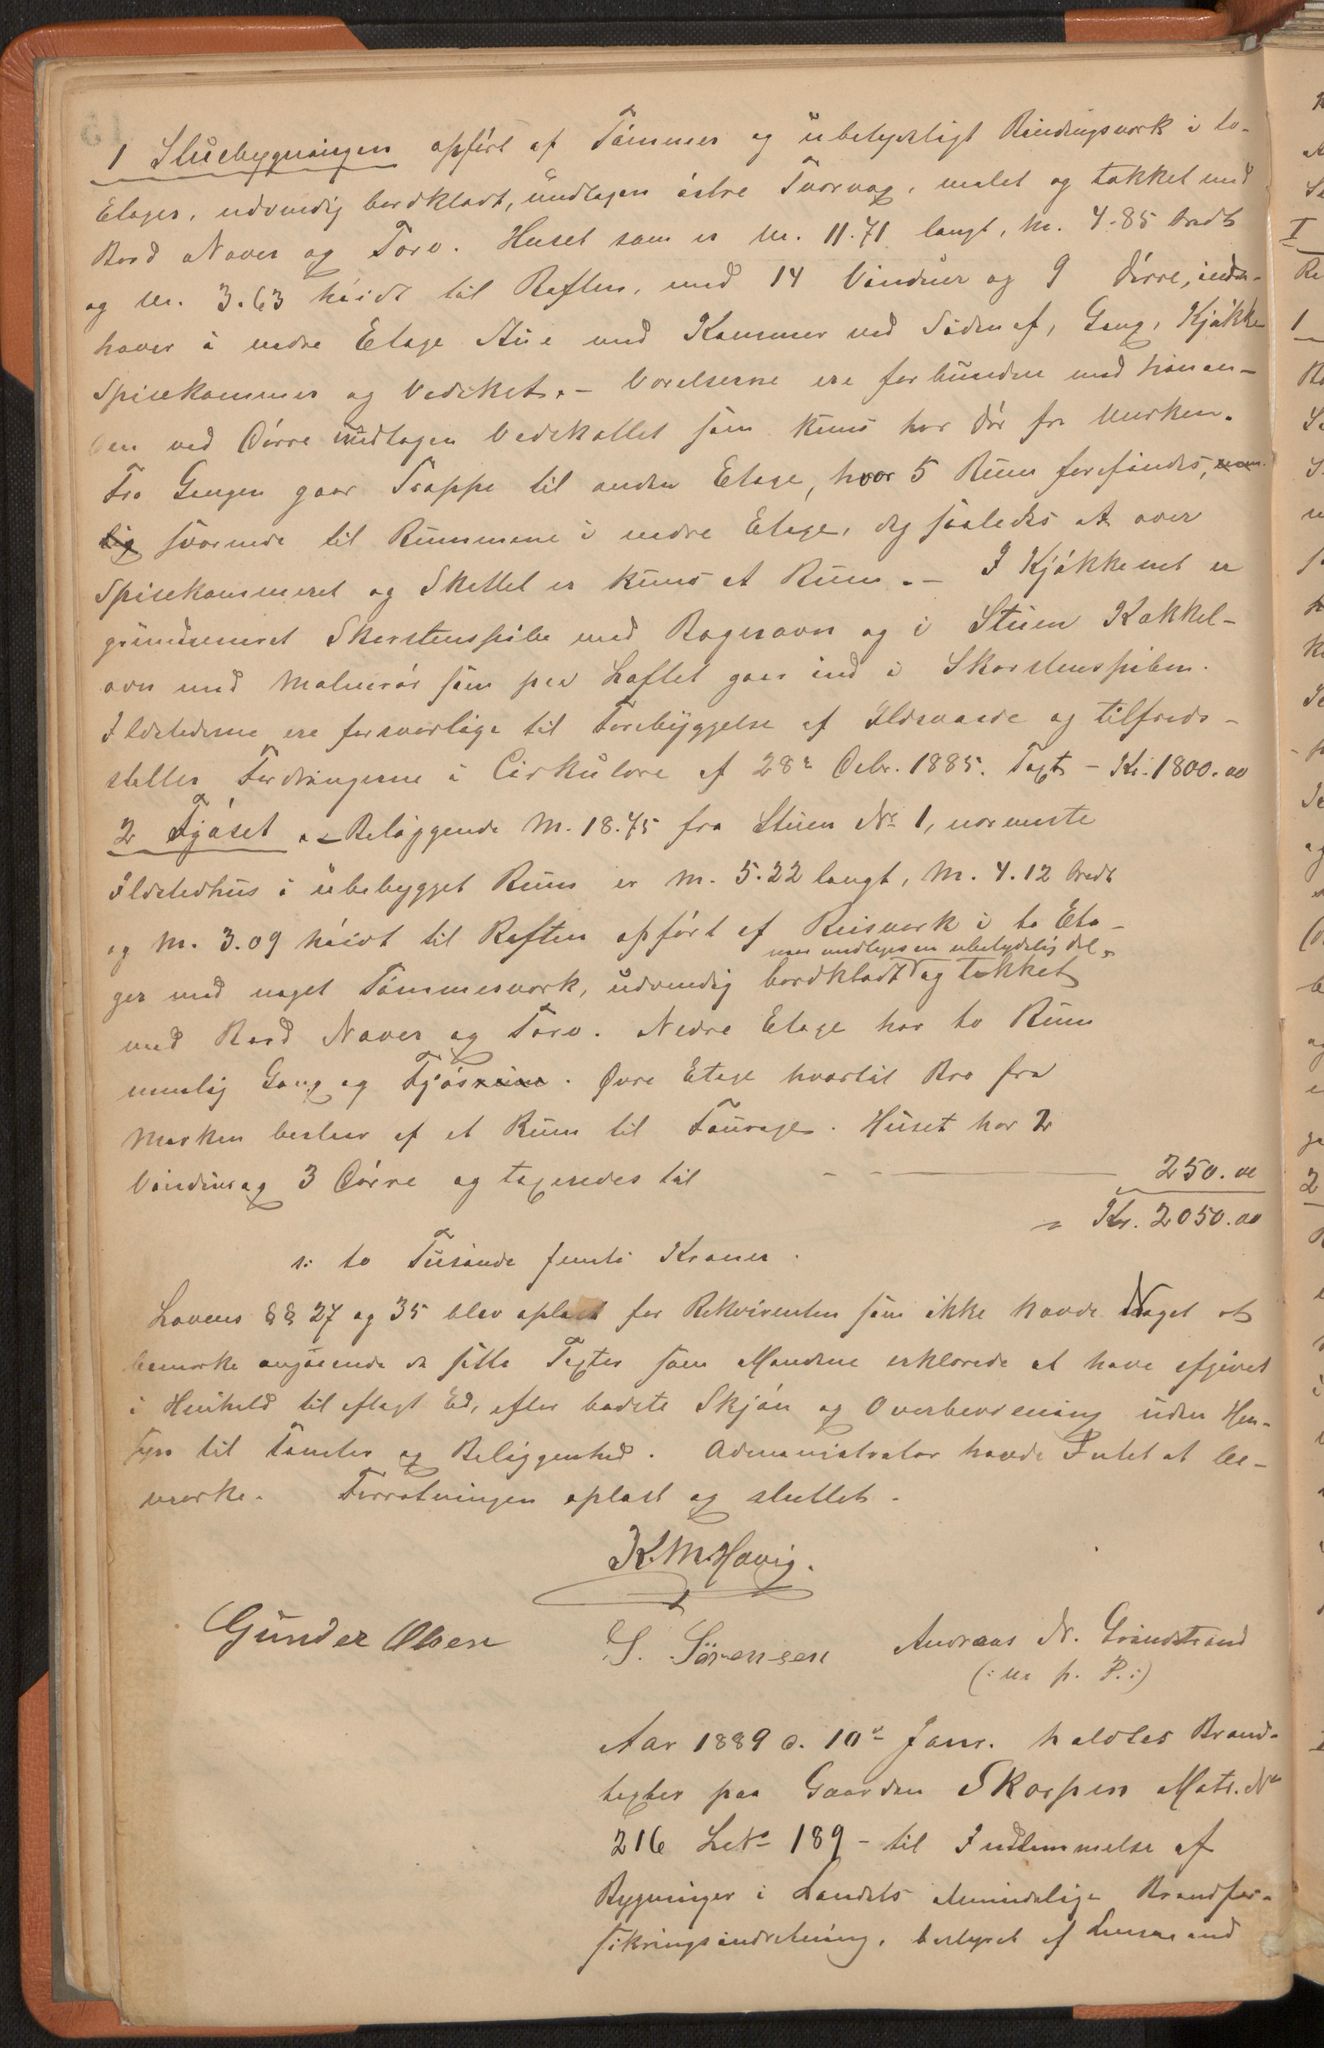 1 Stuebygningen opført af Tømmer og ubetydeligt Bindingsverk i to
Etager, udvendig bordklædt, undtagen østre Tvervæg, malet og tækket med
Bord Næver og Torv. Huset som er M. 11.71 langt, M. 4.85 bredt
og M. 3.63 høidt til Raften, med 14 Vinduer og 9 Dørre, inde-
haver i nedre Etage Stue med Kammer ved Siden af, Gang, Kjøkken
Spisekammer og Vedsket. – Værelserne ere forbunden med hinan-
den ved Dørre undtagen Vedskottet som kuns har Dør fra Marken.
Fra Gangen gaar Trappe til anden Etage, hvor 5 Rum forefindes, nem-
lig svarende til Rummene i nedre Etage, dog saaledes at over
Spisekammeret og Skottet er kuns et Rum. – I Kjøkkenet er
grundmuret Skorstenspibe med Bagerovn og i Stuen Kakkel-
ovn med Malmrør som paa Loftet gaar ind i Skorstenspiben.
Ildstederne ere forsvarlige til Forebyggelse af Ildsvaade og tilfreds-
stiller Fordringerne i Cirkulære af 28de Debr. 1885. Taxt – Kr. 1800.00
2 Fjøset – Beliggende M. 18.75 fra Stuen No 1, nærmeste
Ildstedhus i ubebygget Rum er M. 5.22 langt, M. 4.12 bredt
og M. 3.09 høidt til Raften opført af Reisverk i to Eta-
naar undtages en ubetydelig del,
ger med noget Tømmerverk, udvendig bordklædt og tækket
med Bord Næver og Torv. Nedre Etage har to Rum
nemlig Gang og Fjøs. Øvre Etage hvortil Bro fra
Marken bestaar af et Rum til Fourage. Huset har 2
Vinduer og 3 Dørre og taxeredes til – – 250.00
Kr. 2050.00
s: to Tusinde femti Kroner.
Lovens §§ 27 og 35 blev oplæst for Rekvirenten som ikke havde Noget at
bemærke angaaende de satte Taxter som Mændene erklærede at have afgivet
i Henhold til aflagt Ed, efter bedste Skjøn og Overbevisning uden Hen-
syn til Tomter og Beliggenhed. Administrator havde Intet at be-
mærke. Forretningen oplæst og sluttet.
K. M. Havig.
Gunder Olsen S. Sørensen Andreas N. Grindstrand
(: m. p. P. :)
Aar 1889 d. 10de Janr. holdtes Brand-
taxter paa Gaarden Skorpen Matr. No
216 LNo 189 – til Indlemmelse af
Bygninger i Landets almindelige Brandfor-
sikringsindretning, bestyret af Lensmand